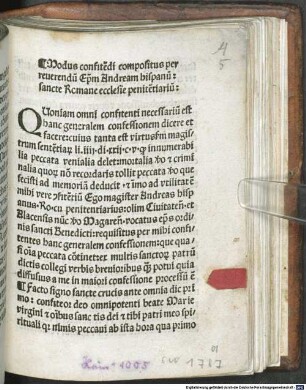 ¶Modus confitẽdi compositus per
reuerendũ Ep̃m Andream hispanũ:
sancte Romane ecclesie penitẽtiariũ:
QUoniam omni confitenti necessariũ est
hanc generalem confessionem dicere et
facere: cuius tanta est virtus
innumerabi
lia peccata venialia delet: mortalia ꝟo ⁊ crimi
nalia quoꝝ nõ recordaris tollit peccata ꝟo que
fecisti ad memoriã deducit ⁊ imo ad vtilitatẽ
mihi
Ego magister Andreas hisp
anus. Ro. cu penitentiarius: olim Ciuitateñ. et
ꝟo Magareñ. vocatus ep̃s ordi
nis sancti Benedicti: requisitus per mihi confi
tentes hanc generalem confessionem: que qua
si oĩa peccata cõtinet: ex multis sanctoꝝ patrũ
dictis collegi verbis breuioribus potui quia
diffusius a me in maiori confessione processũ ẽ
¶Facto signo sancte crucis ante omnia dic pri
mo: confiteor deo omnipotenti beate Marie
virgini ⁊ oĩbus sanctis dei ⁊ tibi patri meo spi
rituali qꝛ nimis peccaui ab ista hora qua primo
1787